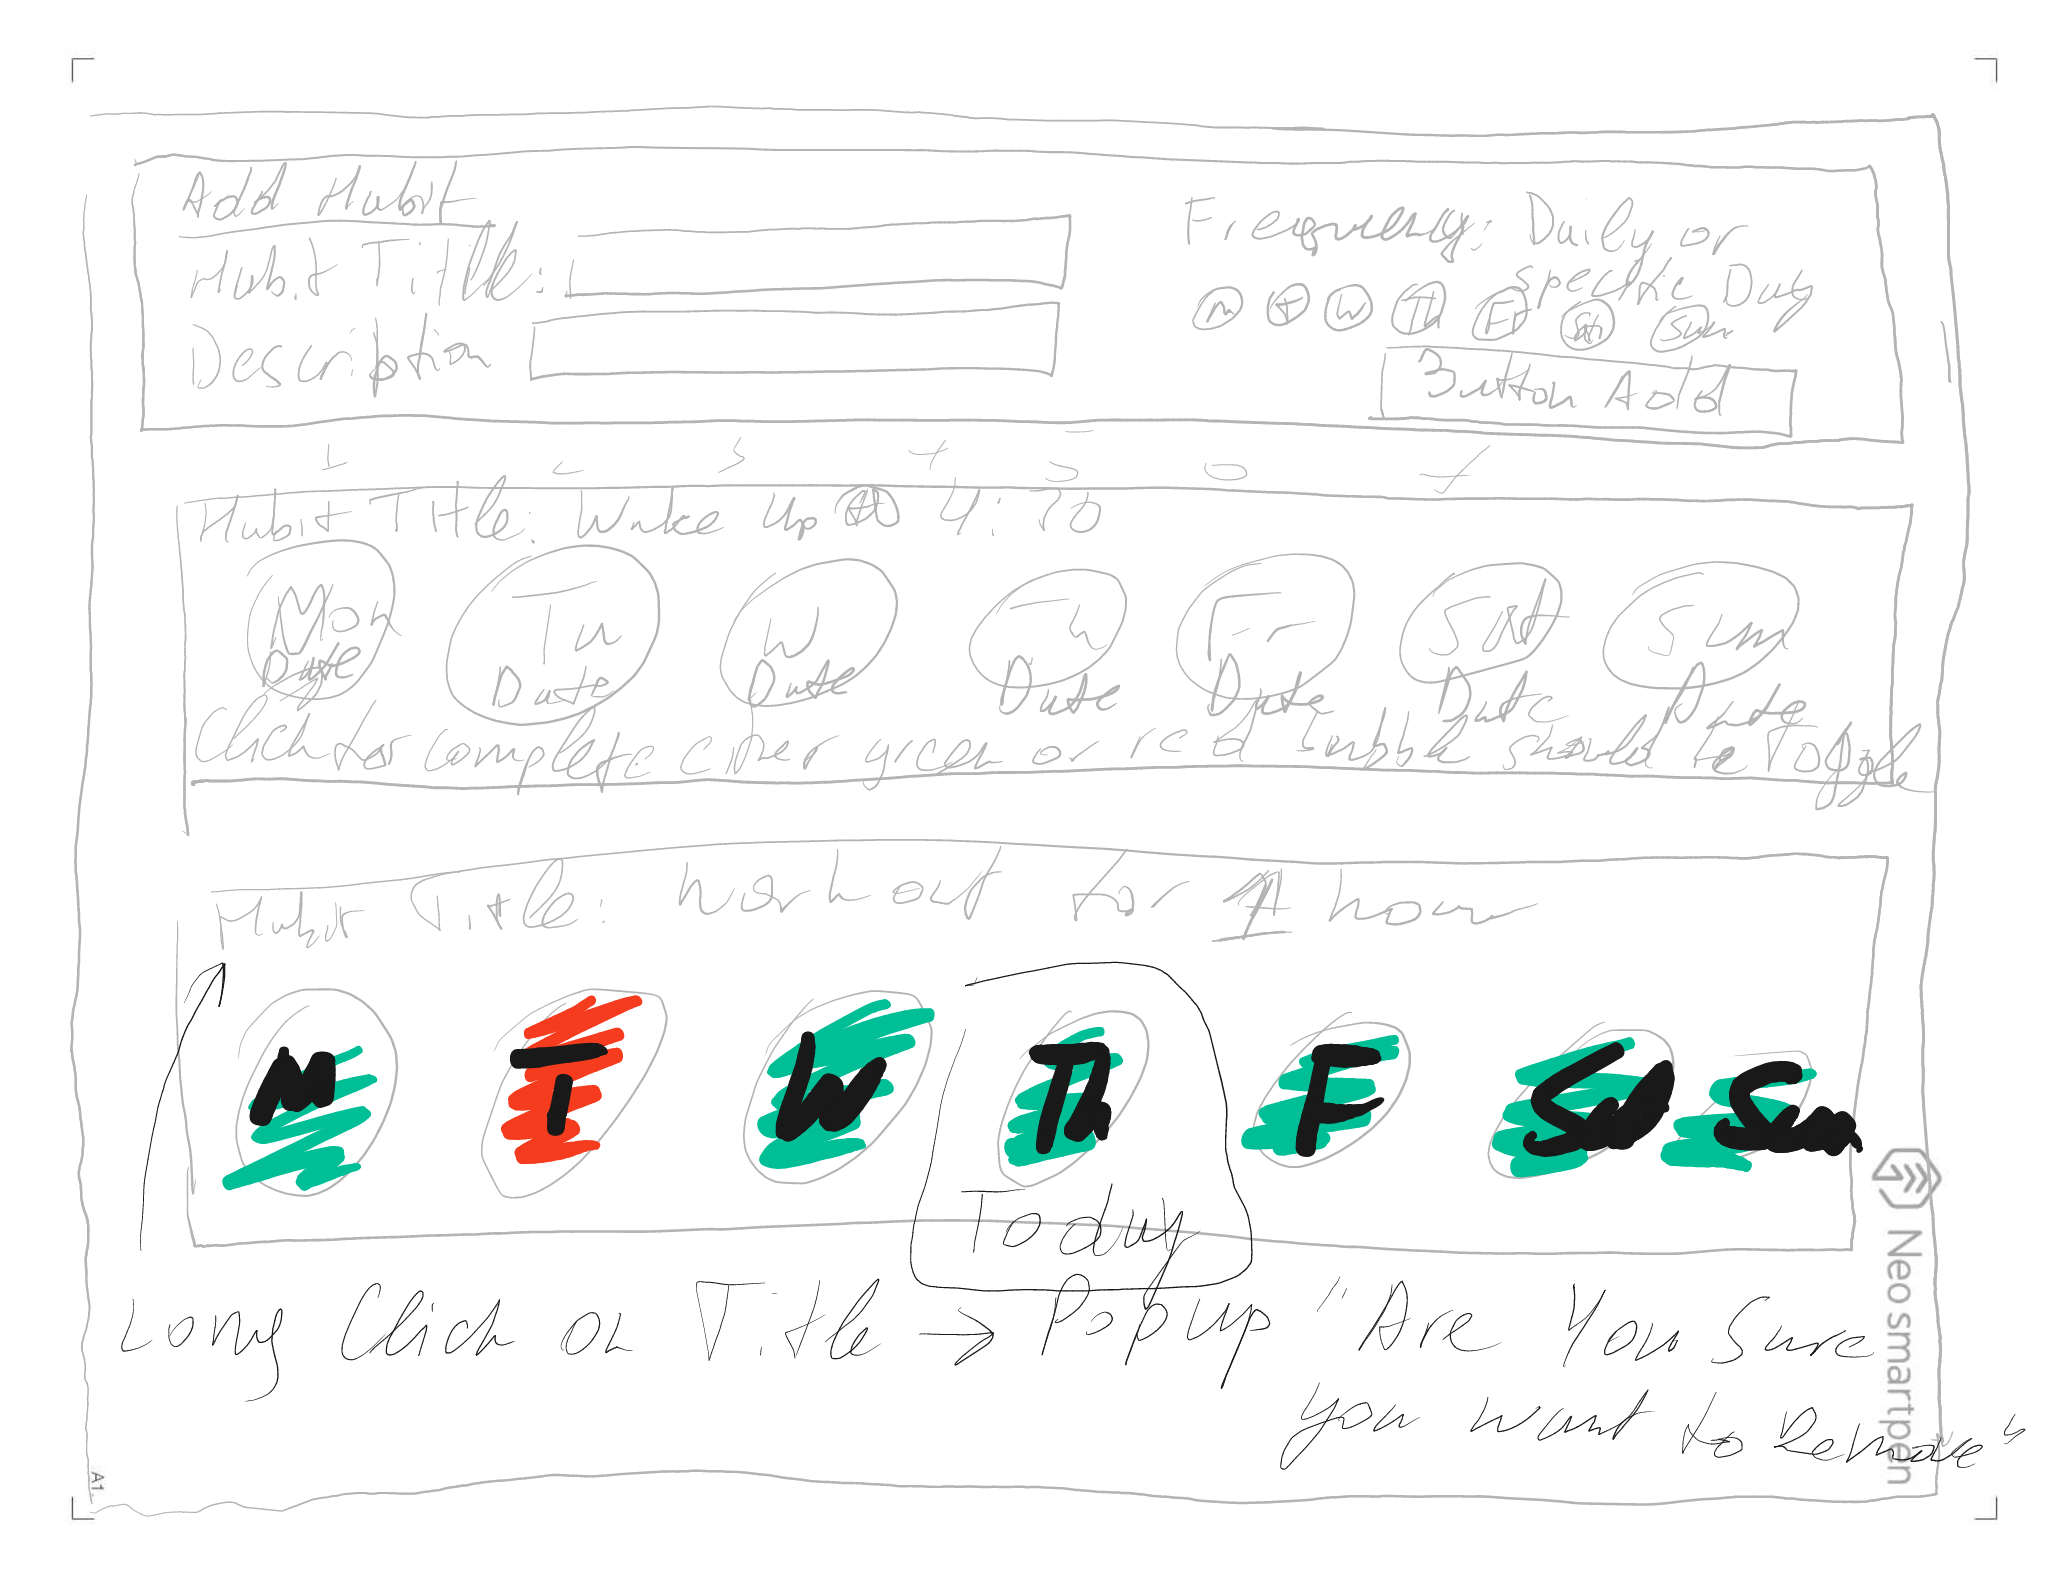 Add Habit
Habit Title:
Description
Frequency: Daily or
specific Day
M T W Th Fr Sat Sun
Button Add
1 2 3 4 5 6 7
Habit Title: Wake Up 4:30
Mon Tu W Th Fr Sat Sun
Date Date Date Date Date Date Date
Click for complete either green or red bubble should be Toggle
Habit Title: Workout for 1 hour
M T W Th F Sat Sun
Today
Long Click on Title → Popup "Are You Sure
you want to Remove"
Neo smartpen
A1.